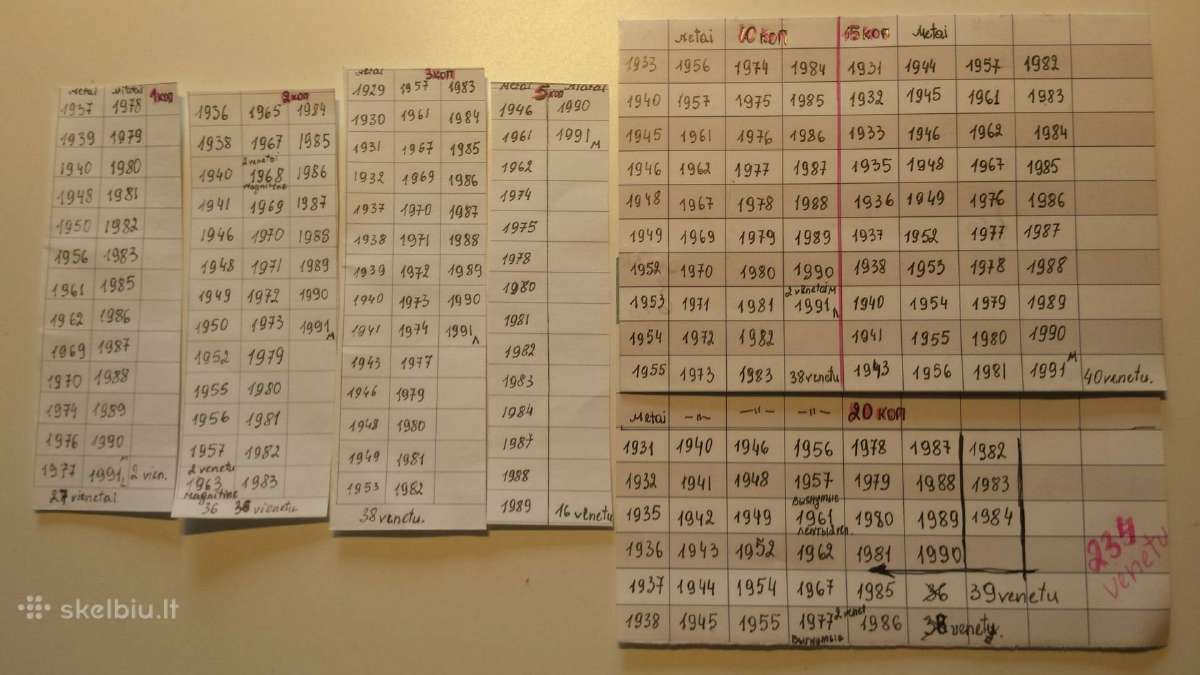 Metai Metai 1коп
1937 1978
1939 1979
1940 1980
1948 1981
1950 1982
1956 1983
1961 1985
1962 1986
1969 1987
1970 1988
1974 1989
1976 1990
1977 1991 2 vien.
27 vienetai
2коп
1936 1965 1984
1938 1967 1985
2 venetai
1940 1968 1986
Magnitine
1941 1969 1987
1946 1970 1988
1948 1971 1989
1949 1972 1990
1950 1973 1991 M
1952 1979
1955 1980
1956 1981
1957 1982
2 venetu
1963 1983
Magnitine
36 vienetu
Metai 3коп
1929 1957 1983
1930 1961 1984
1931 1967 1985
1932 1969 1986
1937 1970 1987
1938 1971 1988
1939 1972 1989
1940 1973 1990
1941 1974 1991 Л
1943 1977
1946 1979
1948 1980
1949 1981
1953 1982
38 venetu.
Metai 5коп Metai
1946 1990
1961 1991 M
1962
1974
1975
1978
1980
1981
1982
1983
1984
1987
1988
1989 16 venetu
Metai 10 коп 15 коп Metai
1933 1956 1974 1984 1931 1944 1957 1982
1940 1957 1975 1985 1932 1945 1961 1983
1945 1961 1976 1986 1933 1946 1962 1984
1946 1962 1977 1987 1935 1948 1967 1985
1948 1967 1978 1988 1936 1949 1976 1986
1949 1969 1979 1989 1937 1952 1977 1987
1952 1970 1980 1990 1938 1953 1978 1988
2 venetai M
1953 1971 1981 1991 Л 1940 1954 1979 1989
1954 1972 1982 1941 1955 1980 1990
1955 1973 1983 38 venetu 1943 1956 1981 1991 M 40 venetu.
Metai -"- -"- -"- 20 коп
1931 1940 1946 1956 1978 1987 1982
1932 1941 1948 1957 1979 1988 1983
Выгнутые
1935 1942 1949 1961 1980 1989 1984
1936 1943 1952 1962 1981 1990
1937 1944 1954 1967 1985 36 39 venetu
1938 1945 1955 1977 2 venet 1986 38 venetu.
Выгнутые
234
venetu
skelbiu.lt